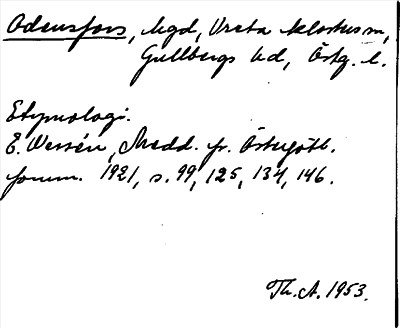 Odensfors, bgd, Vreta klosters sn,
Gullbergs hd, Östg. l.
Etymologi.
E. Wessén, Medd. fr. Östergötl.
fornm. 1921, s. 99, 125, 134, 146.
Th. A. 1953.